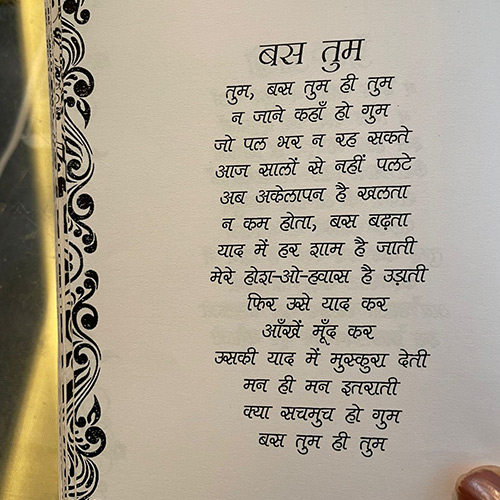 बस तुम
तुम, बस तुम ही तुम
न जाने कहाँ हो गुम
जो पल भर न रह सकते
आज सालों से नहीं पलटे
अब अकेलापन है खलता
न कम होता, बस बढ़ता
याद में हर शाम है जाती
मेरे होश-ओ-हवास है उड़ाती
फिर उसे याद कर
आँखें मूँद कर
उसकी याद में मुस्कुरा देती
मन ही मन इतराती
क्या सचमुच हो गुम
बस तुम ही तुम